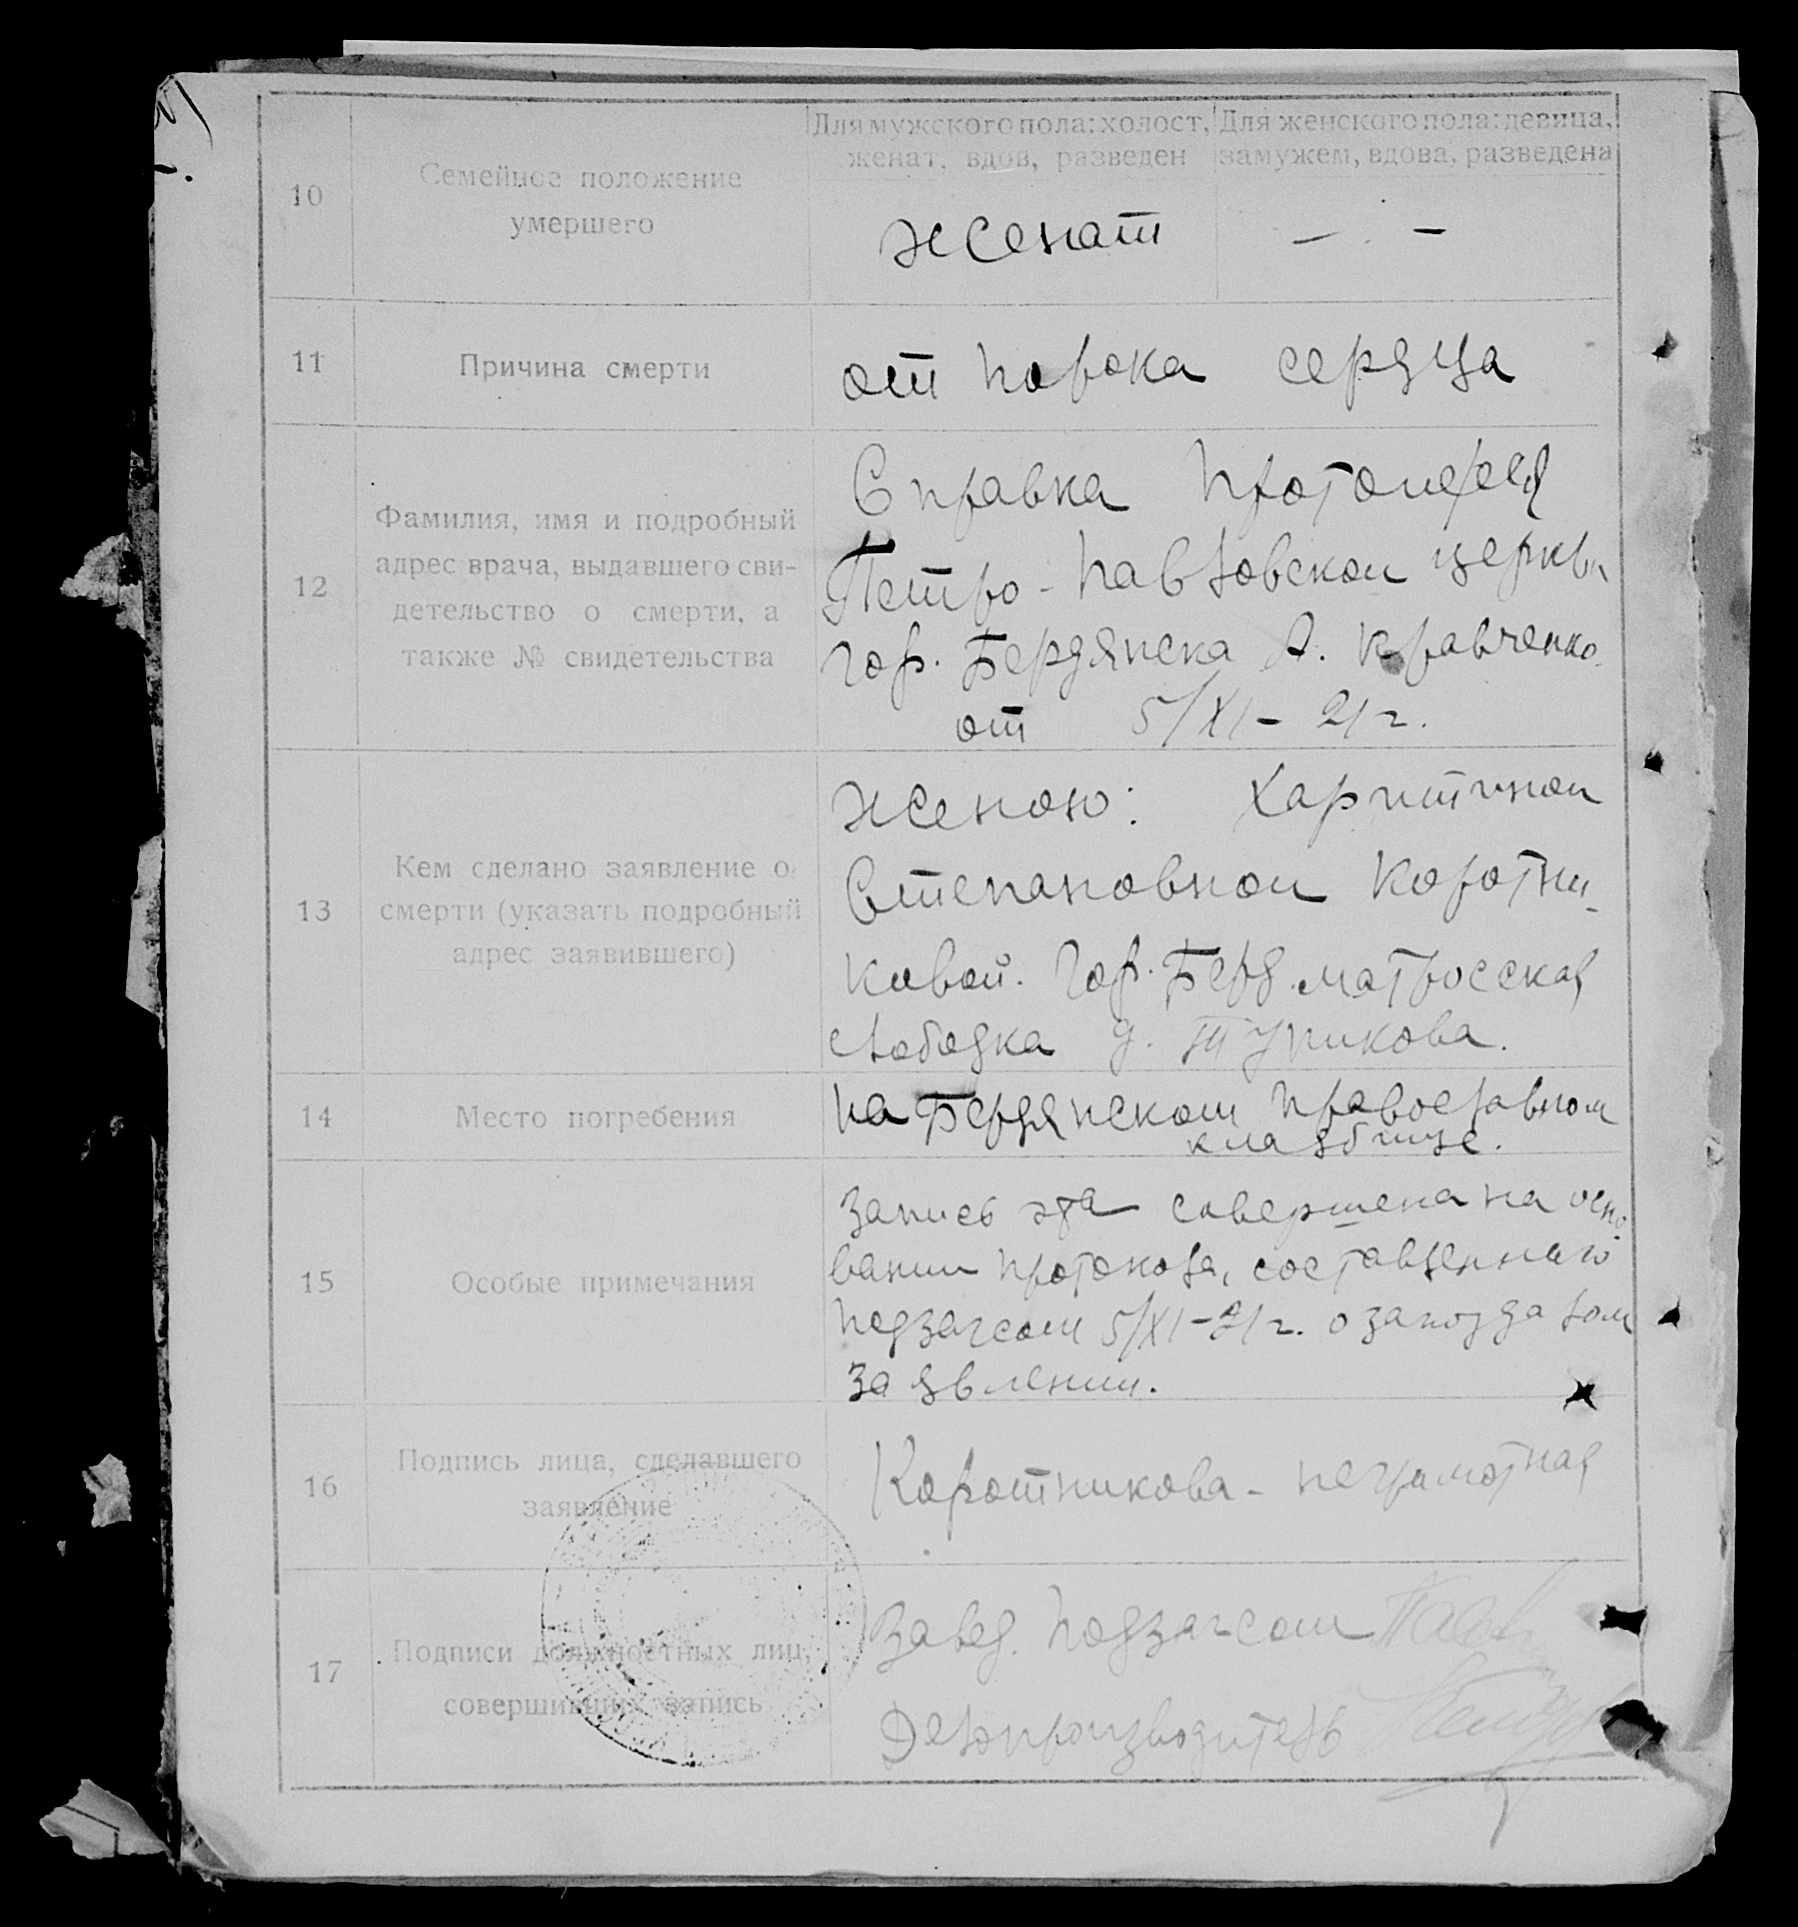 Для мужского пола: холост, женат, вдов, разведен
Для женского пола: девица, замужем, вдова, разведена
10
Семейное положение
умершего
женат
— —
11
Причина смерти
от порока сердца
12
Фамилия, имя и подробный
адрес врача, выдавшего сви-
детельство о смерти, а
также № свидетельства
Справка протоиерея
Петро-Павловской церкви
гор. Бердянска А. Кравченко
от 5/XI – 21 г.
13
Кем сделано заявление о
смерти (указать подробный
адрес заявившего)
женою: Харитиной
Степановной Коротни-
ковой. Гор. Берд. матросская
слободка д. Тупикова.
14
Место погребения
на Бердянском православном
кладбище.
15
Особые примечания
Запись эта совершена на осно
вании протокола, составленного
подзагсом 5/XI – 21 г. о запоздалом
заявлении.
16
Подпись лица, сделавшего
заявление
Коротникова – неграмотная
17
Подписи должностных лиц,
совершивших запись
Завед. подзагсом
Делопроизводитель